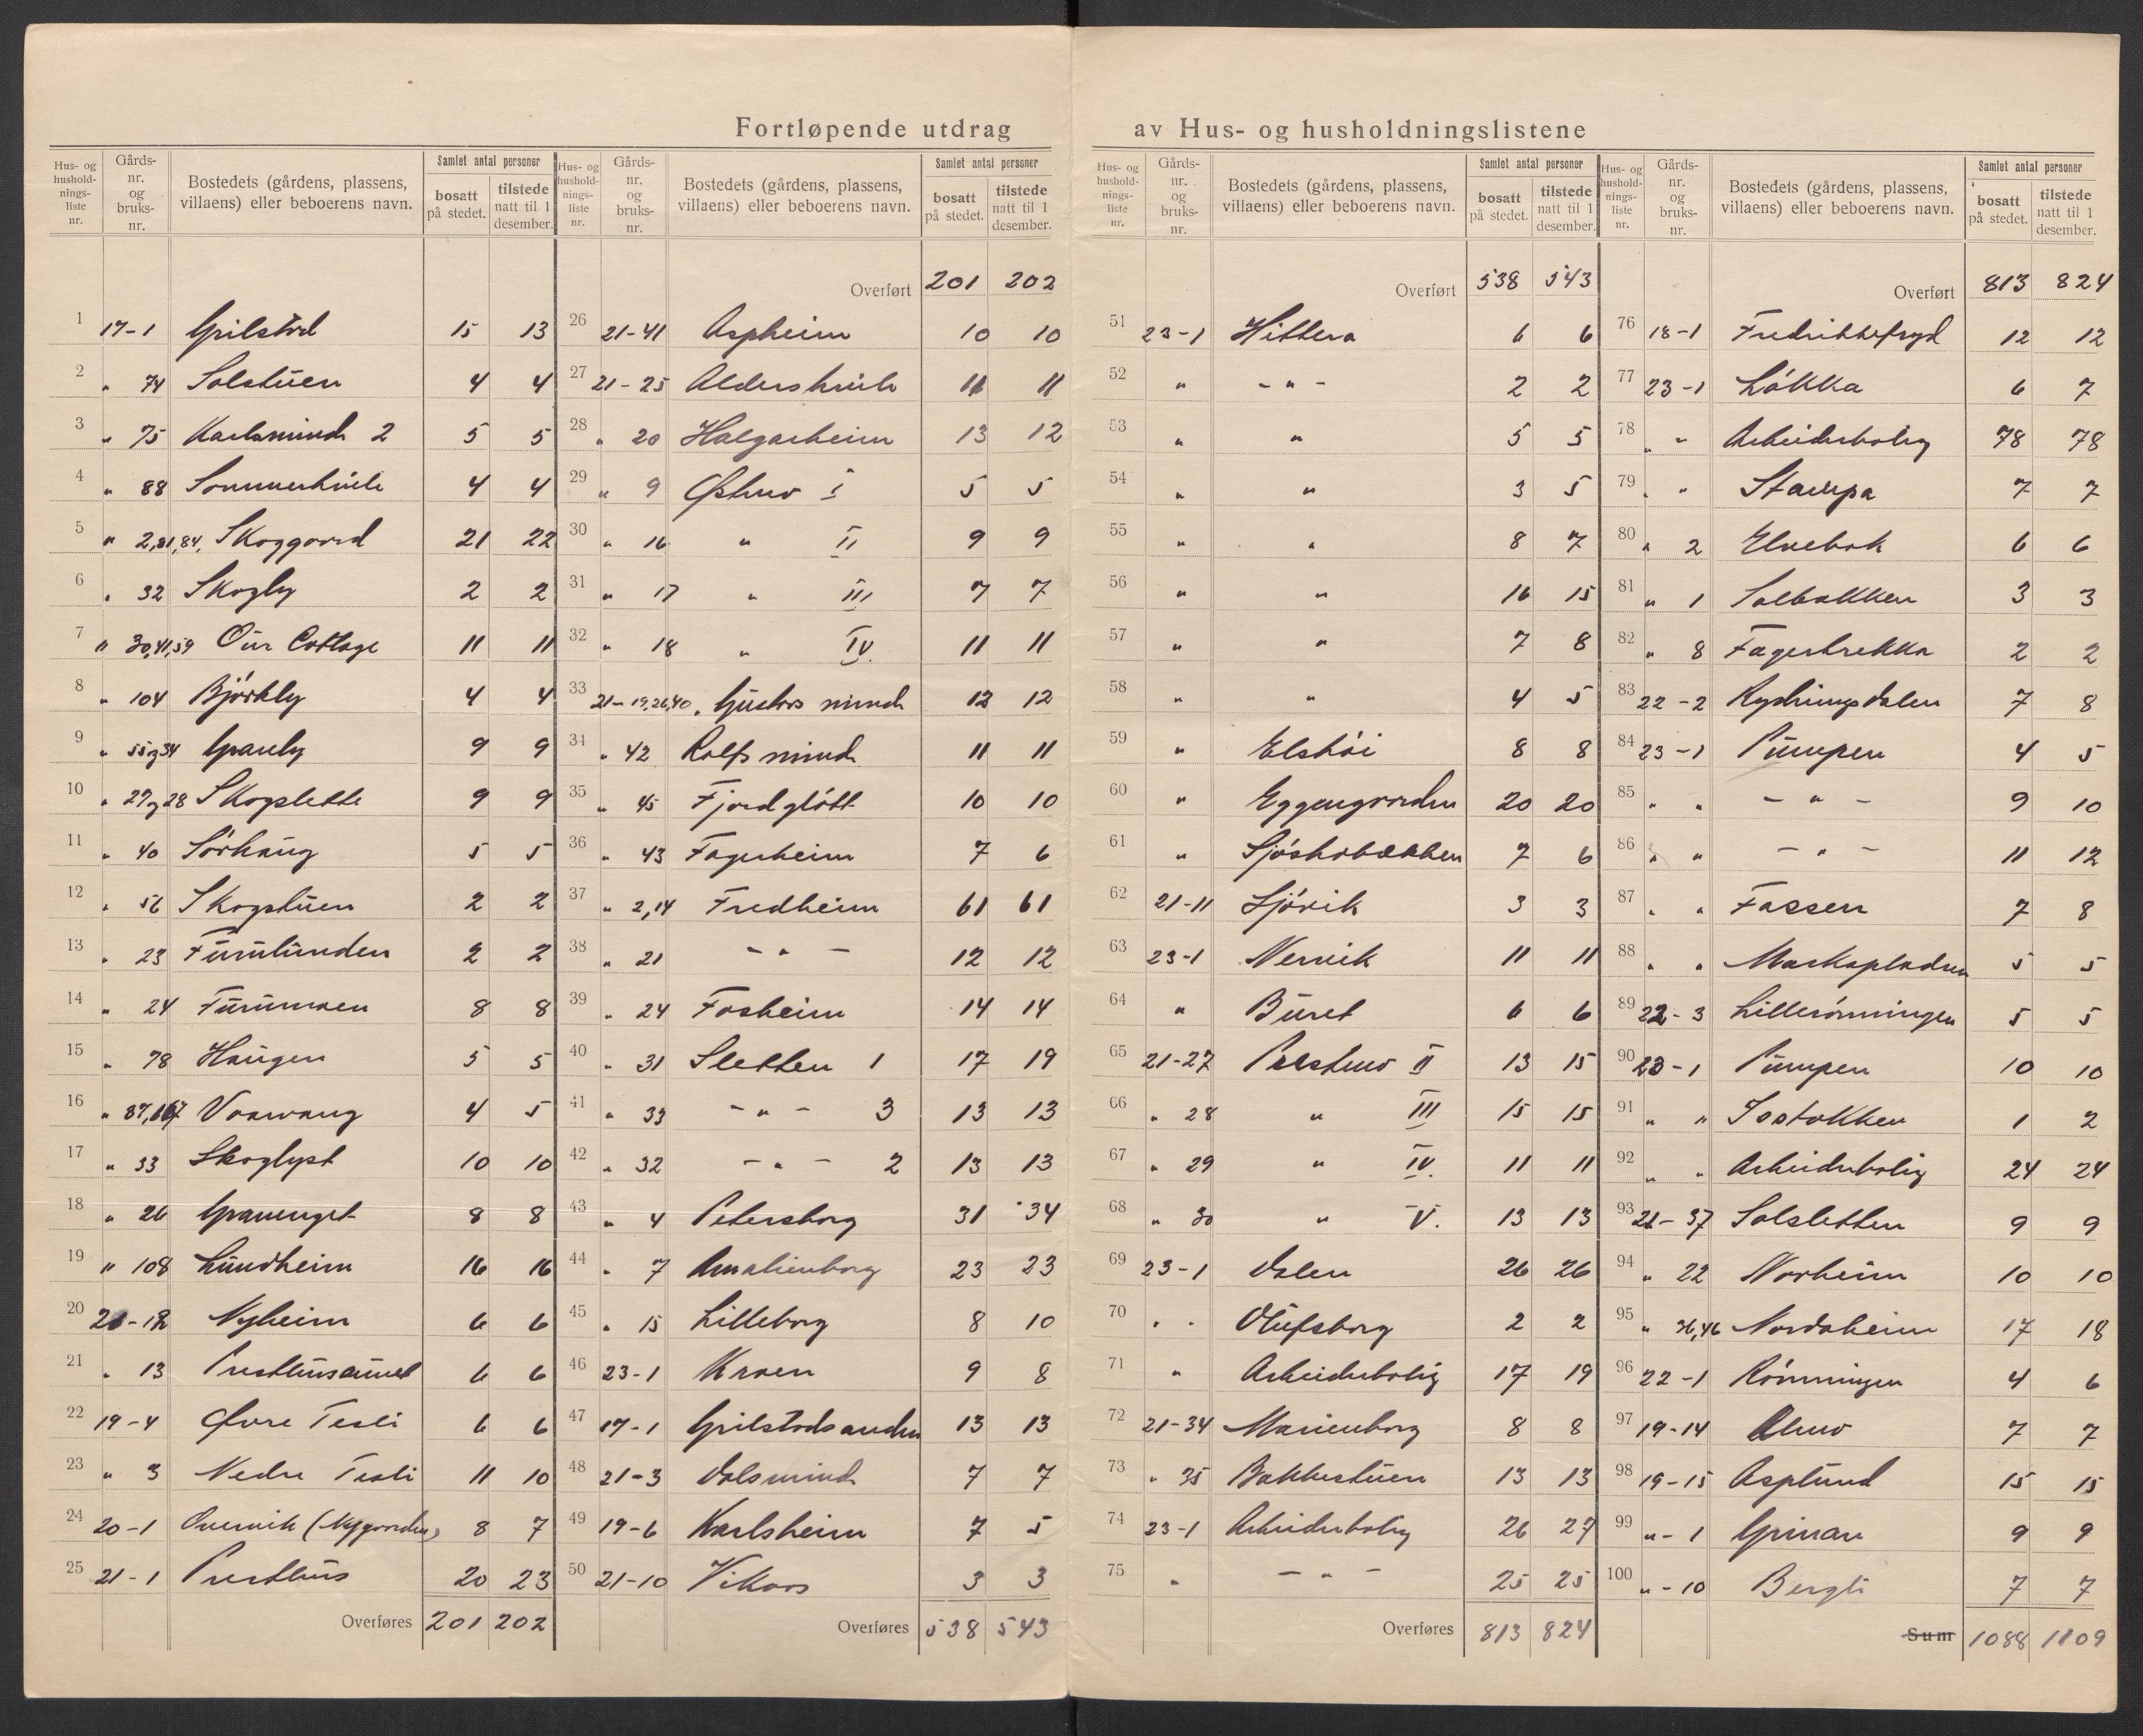 Fortløpende utdrag av Hus- og husholdningslistene
Hus- og hushold- nings- liste nr. Gårds- nr. og bruks- nr. Bostedets (gårdens, plassens, villaens) eller beboerens navn. Samlet antal personer bosatt på stedet. tilstede natt til 1 desember.
1 17-1 Grilstad 15 13
2 " 74 Solstuen 4 4
3 " 75 Karlsminde 2 5 5
4 " 88 Sommerhvile 4 4
5 " 2,81,84, Skoggaard 21 22
6 " 32 Skogly 2 2
7 " 30,41,59 Our Cottage 11 11
8 " 104 Björkly 4 4
9 " 55 og 34 Granly 9 9
10 " 27 og 28 Skogslette 9 9
11 " 40 Sörhaug 5 5
12 " 56 Skogstuen 2 2
13 " 23 Furulunden 2 2
14 " 24 Furumoen 8 8
15 " 78 Haugen 5 5
16 " 87,167 Vaarvang 4 5
17 " 33 Skoglyst 10 10
18 " 26 Granenget 8 8
19 " 108 Lundheim 16 16
20 21-12 Nyheim 6 6
21 " 13 Presthusaunet 6 6
22 19-4 Øvre Tesli 6 6
23 " 3 Nedre Tesli 11 10
24 20-1 Overvik (Nygaarden) 8 7
25 21-1 Presthus 20 23
Overføres 201 202
Hus- og hushold- nings- liste nr. Gårds- nr. og bruks- nr. Bostedets (gårdens, plassens, villaens) eller beboerens navn. Samlet antal personer bosatt på stedet. tilstede natt til 1 desember.
Overført 201 202
26 21-41 Aspheim 10 10
27 21-25 Aldershvile 11 11
28 " 20 Halgarheim 13 12
29 " 9 Østmo I 5 5
30 " 16 " II 9 9
31 " 17 " III 7 7
32 " 18 " IV. 11 11
33 21-19,26,40. Gustavs minde 12 12
34 " 42 Rolfs minde 11 11
35 " 45 Fjordgløtt 10 10
36 " 43 Fagerheim 7 6
37 " 2,14 Fredheim 61 61
38 " 21 - " - 12 12
39 " 24 Fosheim 14 14
40 " 31 Sletten 1 17 19
41 " 33 - " - 3 13 13
42 " 32 - " - 2 13 13
43 " 4 Petersborg 31 34
44 " 7 Amalienborg 23 23
45 " 15 Lilleborg 8 10
46 23-1 Kroen 9 8
47 17-1 Grilstadsanden 13 13
48 21-3 Dalsminde 7 7
49 19-6 Karlsheim 7 5
50 21-10 Vikaas 3 3
Overføres 538 543
Hus- og hushold- nings- liste nr. Gårds- nr. og bruks- nr. Bostedets (gårdens, plassens, villaens) eller beboerens navn. Samlet antal personer bosatt på stedet. tilstede natt til 1 desember.
Overført 538 543
51 23-1 Hittera 6 6
52 " - " - 2 2
53 " " 5 5
54 " " 3 5
55 " " 8 7
56 " " 16 15
57 " " 7 8
58 " " 4 5
59 " Elshöi 8 8
60 " Eggengaarden 20 20
61 " Sjöskobakken 7 6
62 21-11 Sjövik 3 3
63 23-1 Nervik 11 11
64 " Buret 6 6
65 21-27 II 13 15
66 " 28 " III 15 15
67 " 29 " IV. 11 11
68 " 30 " V. 13 13
69 23-1 Dalen 26 26
70 " " Olufsborg 2 2
71 " Arbeiderbolig 17 19
72 21-34 Marienborg 8 8
73 " 35 Bakkestuen 13 13
74 23-1 Arbeiderbolig 26 27
75 " - " - 25 25
Overføres 813 824
Hus- og hushold- nings- liste nr. Gårds- nr. og bruks- nr. Bostedets (gårdens, plassens, villaens) eller beboerens navn. Samlet antal personer bosatt på stedet. tilstede natt til 1 desember.
Overført 813 824
76 18-1 Fredrikkefryd 12 12
77 23-1 Løkka 6 7
78 " " Arbeiderbolig 78 78
79 " " Stampa 7 7
80 " 2 Elvebak 6 6
81 " 1 Solbakken 3 3
82 " 8 Fagerbrekka 2 2
83 22-2 7 8
84 23-1 Pumpen 4 5
85 " " - " - 9 10
86 " " - " - 11 12
87 " " Fossen 7 8
88 " " Markapladsen 5 5
89 22-3 Lillerønningen 5 5
90 23-1 Pumpen 10 10
91 " " 1 2
92 " " Arbeiderbolig 24 24
93 21-37 Solsletten 9 9
94 " 22 Norheim 10 10
95 " 36,46 Nordaheim 17 18
96 22-1 Rönningen 4 6
97 19-14 Almo 7 7
98 19-15 Asplund 15 15
99 "-1 Grinan 9 9
100 "-10 Bergli 7 7
Sum 1088 1109